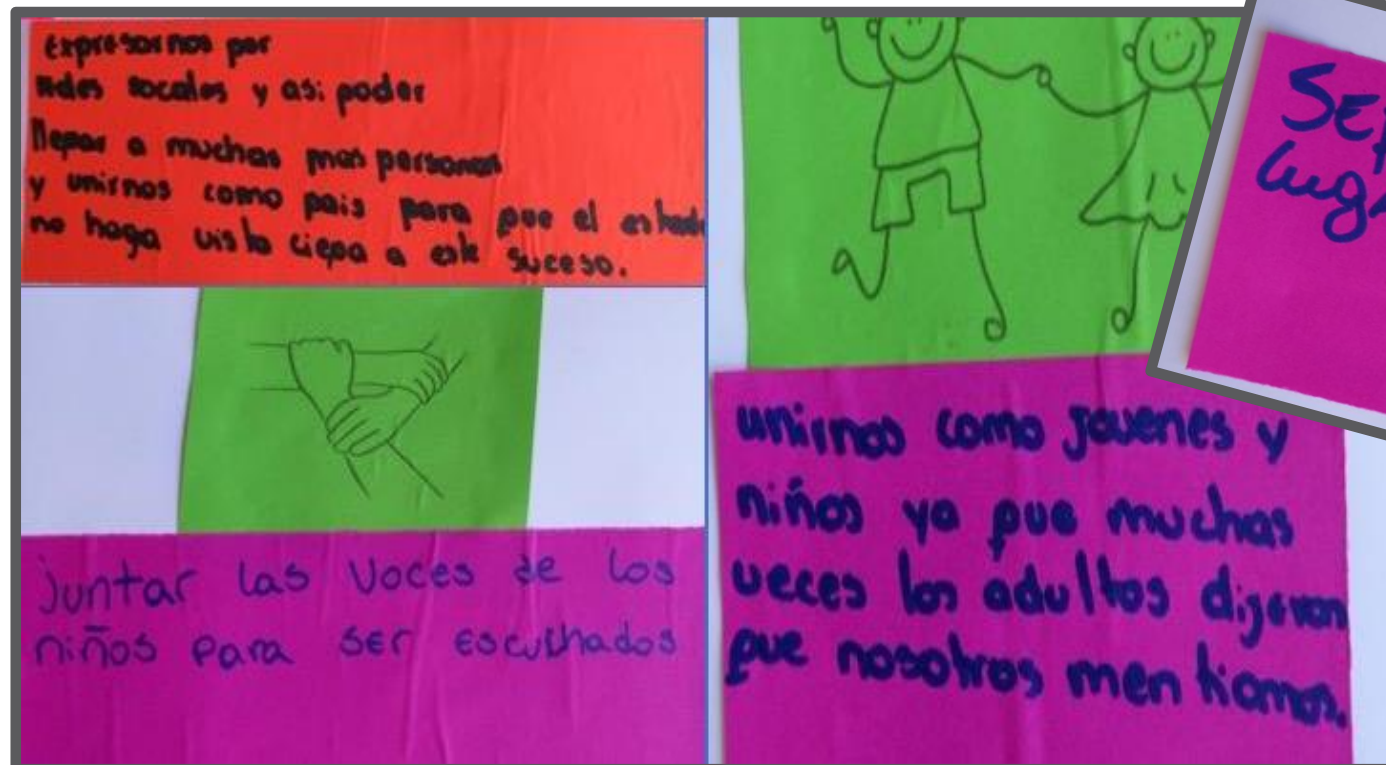 Expresarnos por
redes socales y asi poder
llegar a muchas mas personas
y unirnos como pais para que el estado
no haga vista ciega a este suceso.
juntar las voces de los
niños para ser escuchados
unirnos como jovenes y
niños ya que muchas
veces los adultos dijeron
que nosotros mentiamos.